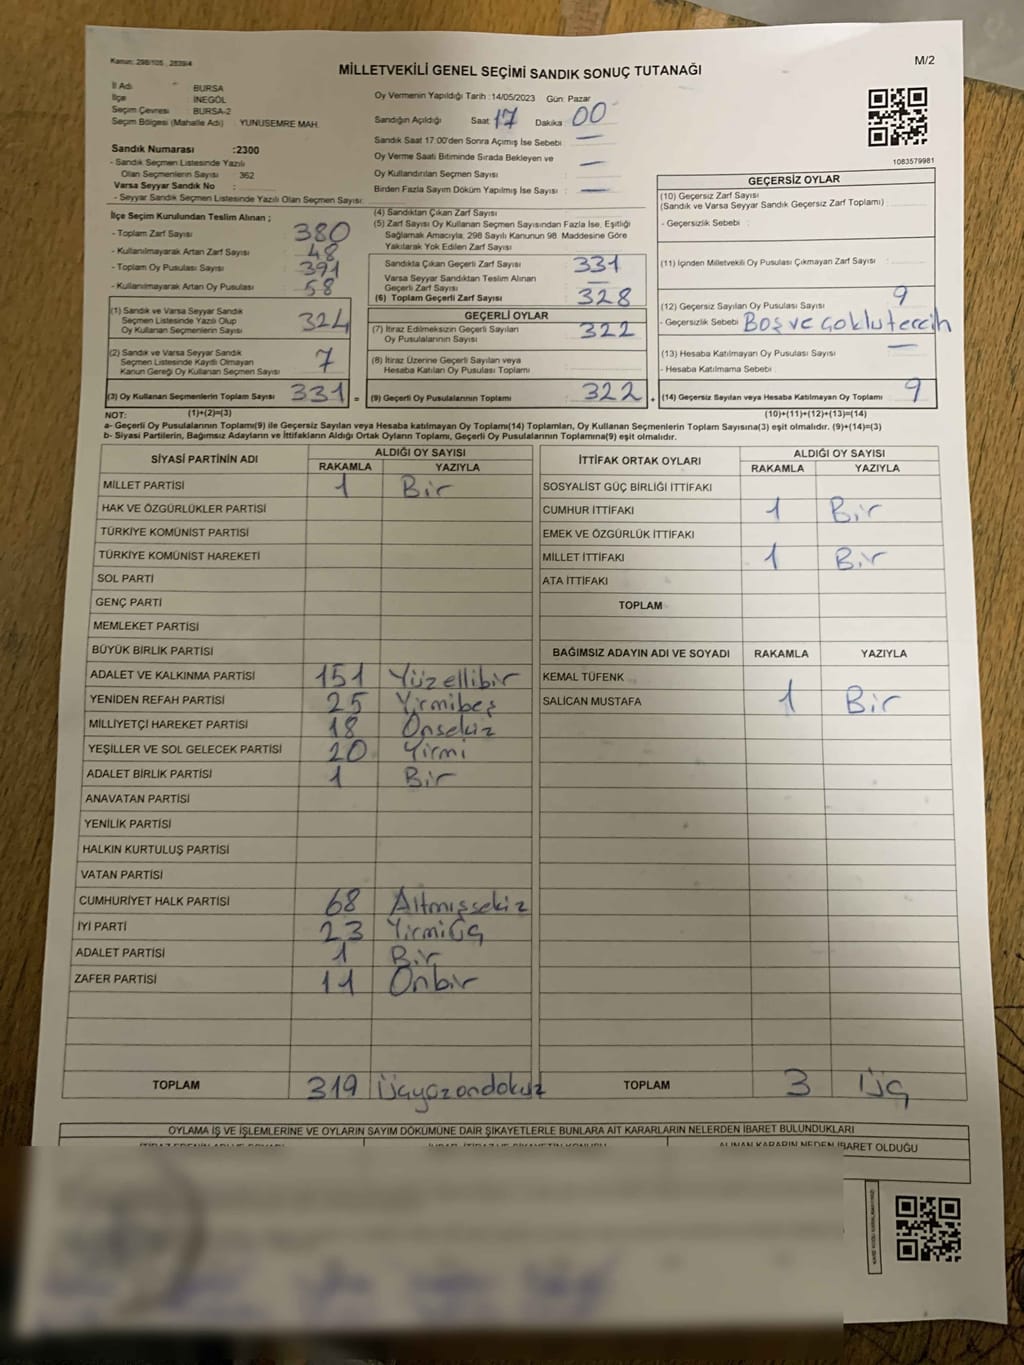 Kanun: 298/105 , 2839/4
M/2
MİLLETVEKİLİ GENEL SEÇİMİ SANDIK SONUÇ TUTANAĞI
İl Adı : BURSA
İlçe : İNEGÖL
Seçim Çevresi : BURSA-2
Seçim Bölgesi (Mahalle Adı) : YUNUSEMRE MAH.
Sandık Numarası :2300
- Sandık Seçmen Listesinde Yazılı
Olan Seçmenlerin Sayısı : 362
Varsa Seyyar Sandık No :
- Seyyar Sandık Seçmen Listesinde Yazılı Olan Seçmen Sayısı:
Oy Vermenin Yapıldığı Tarih :14/05/2023 Gün: Pazar
Sandığın Açıldığı Saat : 17 Dakika : 00
Sandık Saat 17.00'den Sonra Açımış İse Sebebi : —
Oy Verme Saati Bitiminde Sırada Bekleyen ve
Oy Kullandırılan Seçmen Sayısı : —
Birden Fazla Sayım Döküm Yapılmış İse Sayısı : —
1083579981
İlçe Seçim Kurulundan Teslim Alınan ;
- Toplam Zarf Sayısı : 380
- Kullanılmayarak Artan Zarf Sayısı : 48
- Toplam Oy Pusulası Sayısı : 391
- Kullanılmayarak Artan Oy Pusulası : 58
(1) Sandık ve Varsa Seyyar Sandık
Seçmen Listesinde Yazılı Olup
Oy Kullanan Seçmenlerin Sayısı : 324
(2) Sandık ve Varsa Seyyar Sandık
Seçmen Listesinde Kayıtlı Olmayan
Kanun Gereği Oy Kullanan Seçmen Sayısı : 7
(3) Oy Kullanan Seçmenlerin Toplam Sayısı : 331 =
(1)+(2)=(3)
(4) Sandıktan Çıkan Zarf Sayısı :
(5) Zarf Sayısı Oy Kullanan Seçmen Sayısından Fazla İse, Eşitliği
Sağlamak Amacıyla, 298 Sayılı Kanunun 98. Maddesine Göre
Yakılarak Yok Edilen Zarf Sayısı :
Sandıkta Çıkan Geçerli Zarf Sayısı : 331
Varsa Seyyar Sandıktan Teslim Alınan
Geçerli Zarf Sayısı : —
(6) Toplam Geçerli Zarf Sayısı : 328
GEÇERLİ OYLAR
(7) İtiraz Edilmeksizin Geçerli Sayılan
Oy Pusulalarının Sayısı : 322
(8) İtiraz Üzerine Geçerli Sayılan veya
Hesaba Katılan Oy Pusulası Toplamı :
(9) Geçerli Oy Pusulalarının Toplamı : 322
GEÇERSİZ OYLAR
(10) Geçersiz Zarf Sayısı
(Sandık ve Varsa Seyyar Sandık Geçersiz Zarf Toplamı) :
- Geçersizlik Sebebi :
(11) İçinden Milletvekili Oy Pusulası Çıkmayan Zarf Sayısı :
(12) Geçersiz Sayılan Oy Pusulası Sayısı : 9
- Geçersizlik Sebebi : Boş ve çoklu tercih
(13) Hesaba Katılmayan Oy Pusulası Sayısı : —
- Hesaba Katılmama Sebebi :
(14) Geçersiz Sayılan veya Hesaba Katılmayan Oy Toplamı : 9
(10)+(11)+(12)+(13)=(14)
NOT:
a- Geçerli Oy Pusulalarının Toplamı(9) ile Geçersiz Sayılan veya Hesaba katılmayan Oy Toplamı(14) Toplamları, Oy Kullanan Seçmenlerin Toplam Sayısına(3) eşit olmalıdır. (9)+(14)=(3)
b- Siyasi Partilerin, Bağımsız Adayların ve İttifakların Aldığı Ortak Oyların Toplamı, Geçerli Oy Pusulalarının Toplamına(9) eşit olmalıdır.
SİYASİ PARTİNİN ADI ALDIĞI OY SAYISI
RAKAMLA YAZIYLA
MİLLET PARTİSİ 1 Bir
HAK VE ÖZGÜRLÜKLER PARTİSİ
TÜRKİYE KOMÜNİST PARTİSİ
TÜRKİYE KOMÜNİST HAREKETİ
SOL PARTİ
GENÇ PARTİ
MEMLEKET PARTİSİ
BÜYÜK BİRLİK PARTİSİ
ADALET VE KALKINMA PARTİSİ 151 Yüzellibir
YENİDEN REFAH PARTİSİ 25 Yirmibeş
MİLLİYETÇİ HAREKET PARTİSİ 18 Onsekiz
YEŞİLLER VE SOL GELECEK PARTİSİ 20 Yirmi
ADALET BİRLİK PARTİSİ 1 Bir
ANAVATAN PARTİSİ
YENİLİK PARTİSİ
HALKIN KURTULUŞ PARTİSİ
VATAN PARTİSİ
CUMHURİYET HALK PARTİSİ 68 Altmışsekiz
İYİ PARTİ 23 Yirmiüç
ADALET PARTİSİ 1 Bir
ZAFER PARTİSİ 11 Onbir
TOPLAM 319 Üçyüzondokuz
İTTİFAK ORTAK OYLARI ALDIĞI OY SAYISI
RAKAMLA YAZIYLA
SOSYALİST GÜÇ BİRLİĞİ İTTİFAKI
CUMHUR İTTİFAKI 1 Bir
EMEK VE ÖZGÜRLÜK İTTİFAKI
MİLLET İTTİFAKI 1 Bir
ATA İTTİFAKI
TOPLAM
BAĞIMSIZ ADAYIN ADI VE SOYADI RAKAMLA YAZIYLA
KEMAL TÜFENK
SALİCAN MUSTAFA 1 Bir
TOPLAM 3 Üç
OYLAMA İŞ VE İŞLEMLERİNE VE OYLARIN SAYIM DÖKÜMÜNE DAİR ŞİKAYETLERLE BUNLARA AİT KARARLARIN NELERDEN İBARET BULUNDUKLARI
ALINAN KARARIN NEDEN İBARET OLDUĞU